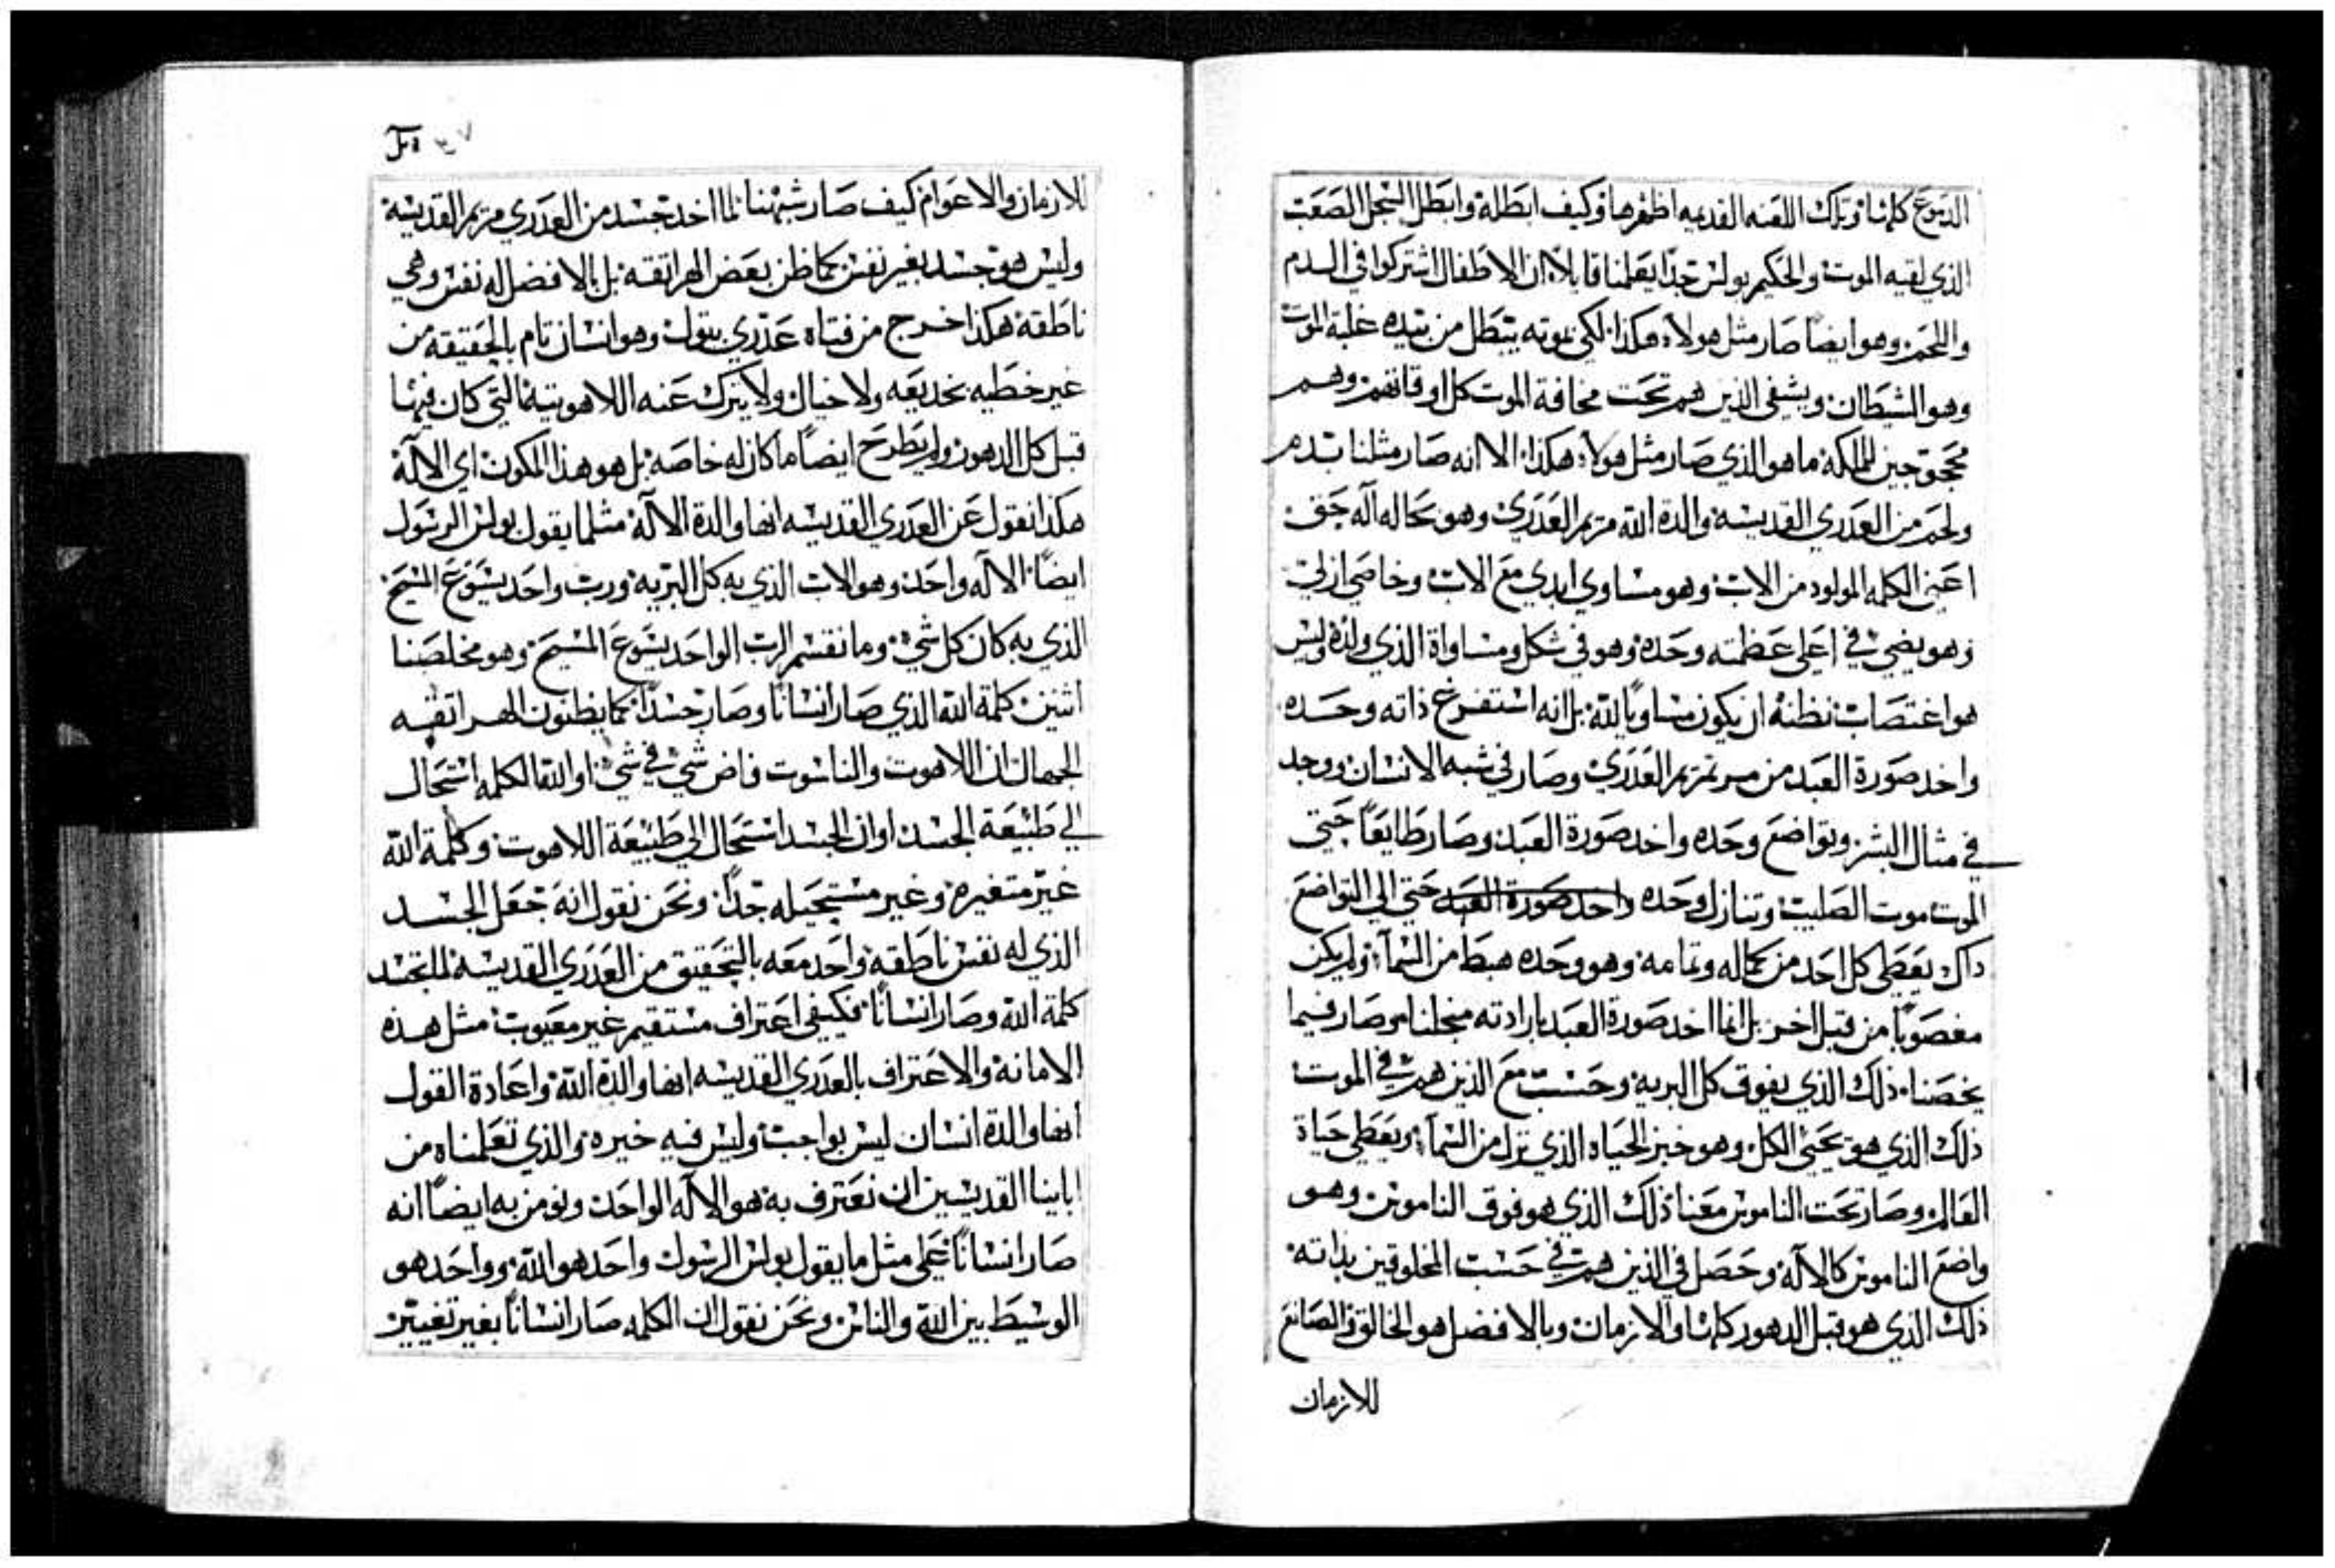 الدموع كلها وتلك اللعنه القديمه اظهرها وكيف ابطلة وابطل السجل الصعب
الذي لقيه الموت والحكيم بولس جدًا يعلمنا قايلًا ان الاطفال اشتركوا في الدم
واللحم وهو ايضًا صار مثل هولاء هكذا لكي بموته يبطل من بيده غلبة الموت
وهو الشيطان ويشفي الذين هم تحت مخافة الموت كل اوقاتهم وهم
للملكه ما هو الذي صار مثل هولاء هكذا الا انه صار مثلنا بدم
ولحم من العدري القديسه والدة الله مريم العدري وهو بحاله اله حق
اعني الكلمه المولود من الاب وهو مساوي ابدي مع الاب وخاصي ازلي
وهو يضي في اعلي عظمته وحده وهو في شكل ومساواة الذي ولده وليس
هو اغتصاب نظنه ان يكون مساويًا لله بل انه استفرغ ذاته وحده
واخد صورة العبد من مرتمريم العدري وصار في شبه الانسان ووجد
في مثال البشر وتواضع وحده واخد صورة العبد وصار طايعًا حتي
الموت موت الصليب وتنازل وحده واخد صورة العبد حتي الي التواضع
داك يعطي كل احد من كماله وتمامه وهو وحده هبط من السمآ ولم يكن
مغصوبًا من قبل اخر بل انما اخد صورة العبد بارادته من اجلنا وصار فيما
يخصنا ذلك الذي يفوق كل البريه وحسب مع الذين هم في الموت
ذلك الذي هو يحيي الكل وهو خبز الحياه الذي نزل من السمآ ويعطي حياة
العالم وصار تحت الناموس معنا ذلك الذي هو فوق الناموس وهو
واضع الناموس كالاله وحصل في الذين هم في حسب المخلوقين بذاته
ذلك الذي هو قبل الدهور كلها والازمان وبالافضل هو الخالق والصانع
للازمان
للازمان والاعوام كيف صار شبهنا لما اخد جسد من العدري مريم القديسه
وليس هو جسد بغير نفس كما ظن بعض الهراتقه بل بالافضل له نفس وهي
ناطقة هكذا خرج من فتاه عدري بتول وهو انسان تام بالحقيقه من
غير خطيه بخديعه ولا خيال ولا يترك عنه اللاهوتية التي كان فيها
قبل كل الدهور ولم يطرح ايضًا ما كان له خاصه بل هو هذا المكون اي الاله
هكذا نقول عن العدري القديسه انها والدة الاله مثلما يقول بولس الرسول
ايضًا الاله واحد وهو الاب الذي به كل البريه ورب واحد يسوع المسيح
الذي به كان كل شي وما نقسم الرب الواحد يسوع المسيح وهو مخلصنا
اثنين كلمة الله الذي صار انسانًا وصار جسدًا كما يظنون الهراتقيه
الجهال ان اللاهوت والناسوت فاض شي في شي او الله الكلمه استحال
الي طبيعة الجسد او ان الجسد استحال الي طبيعة اللاهوت وكلمة الله
غير متغيره وغير مستحيله جدًا ونحن نقول انه جعل الجسد
الذي له نفس ناطقه واحد معه بالتحقيق من العدري القديسه
كلمة الله وصار انسانًا فيكفي اعتراف مستقيم غير معيوب مثل هذه
الامانه والاعتراف بالعدري القديسه انها والدة الله واعادة القول
انها والدة انسان ليس بواجب وليس فيه خيره والذي تعلمناه من
اباينا القديسين ان نعترف به هو الاله الواحد ونومن به ايضًا انه
صار انسانًا علي مثل ما يقول بولس الرسول واحد هو الله وواحد هو
الوسيط بين الله والناس ونحن نقول ان الكلمه صار انسانًا بغير تغيير